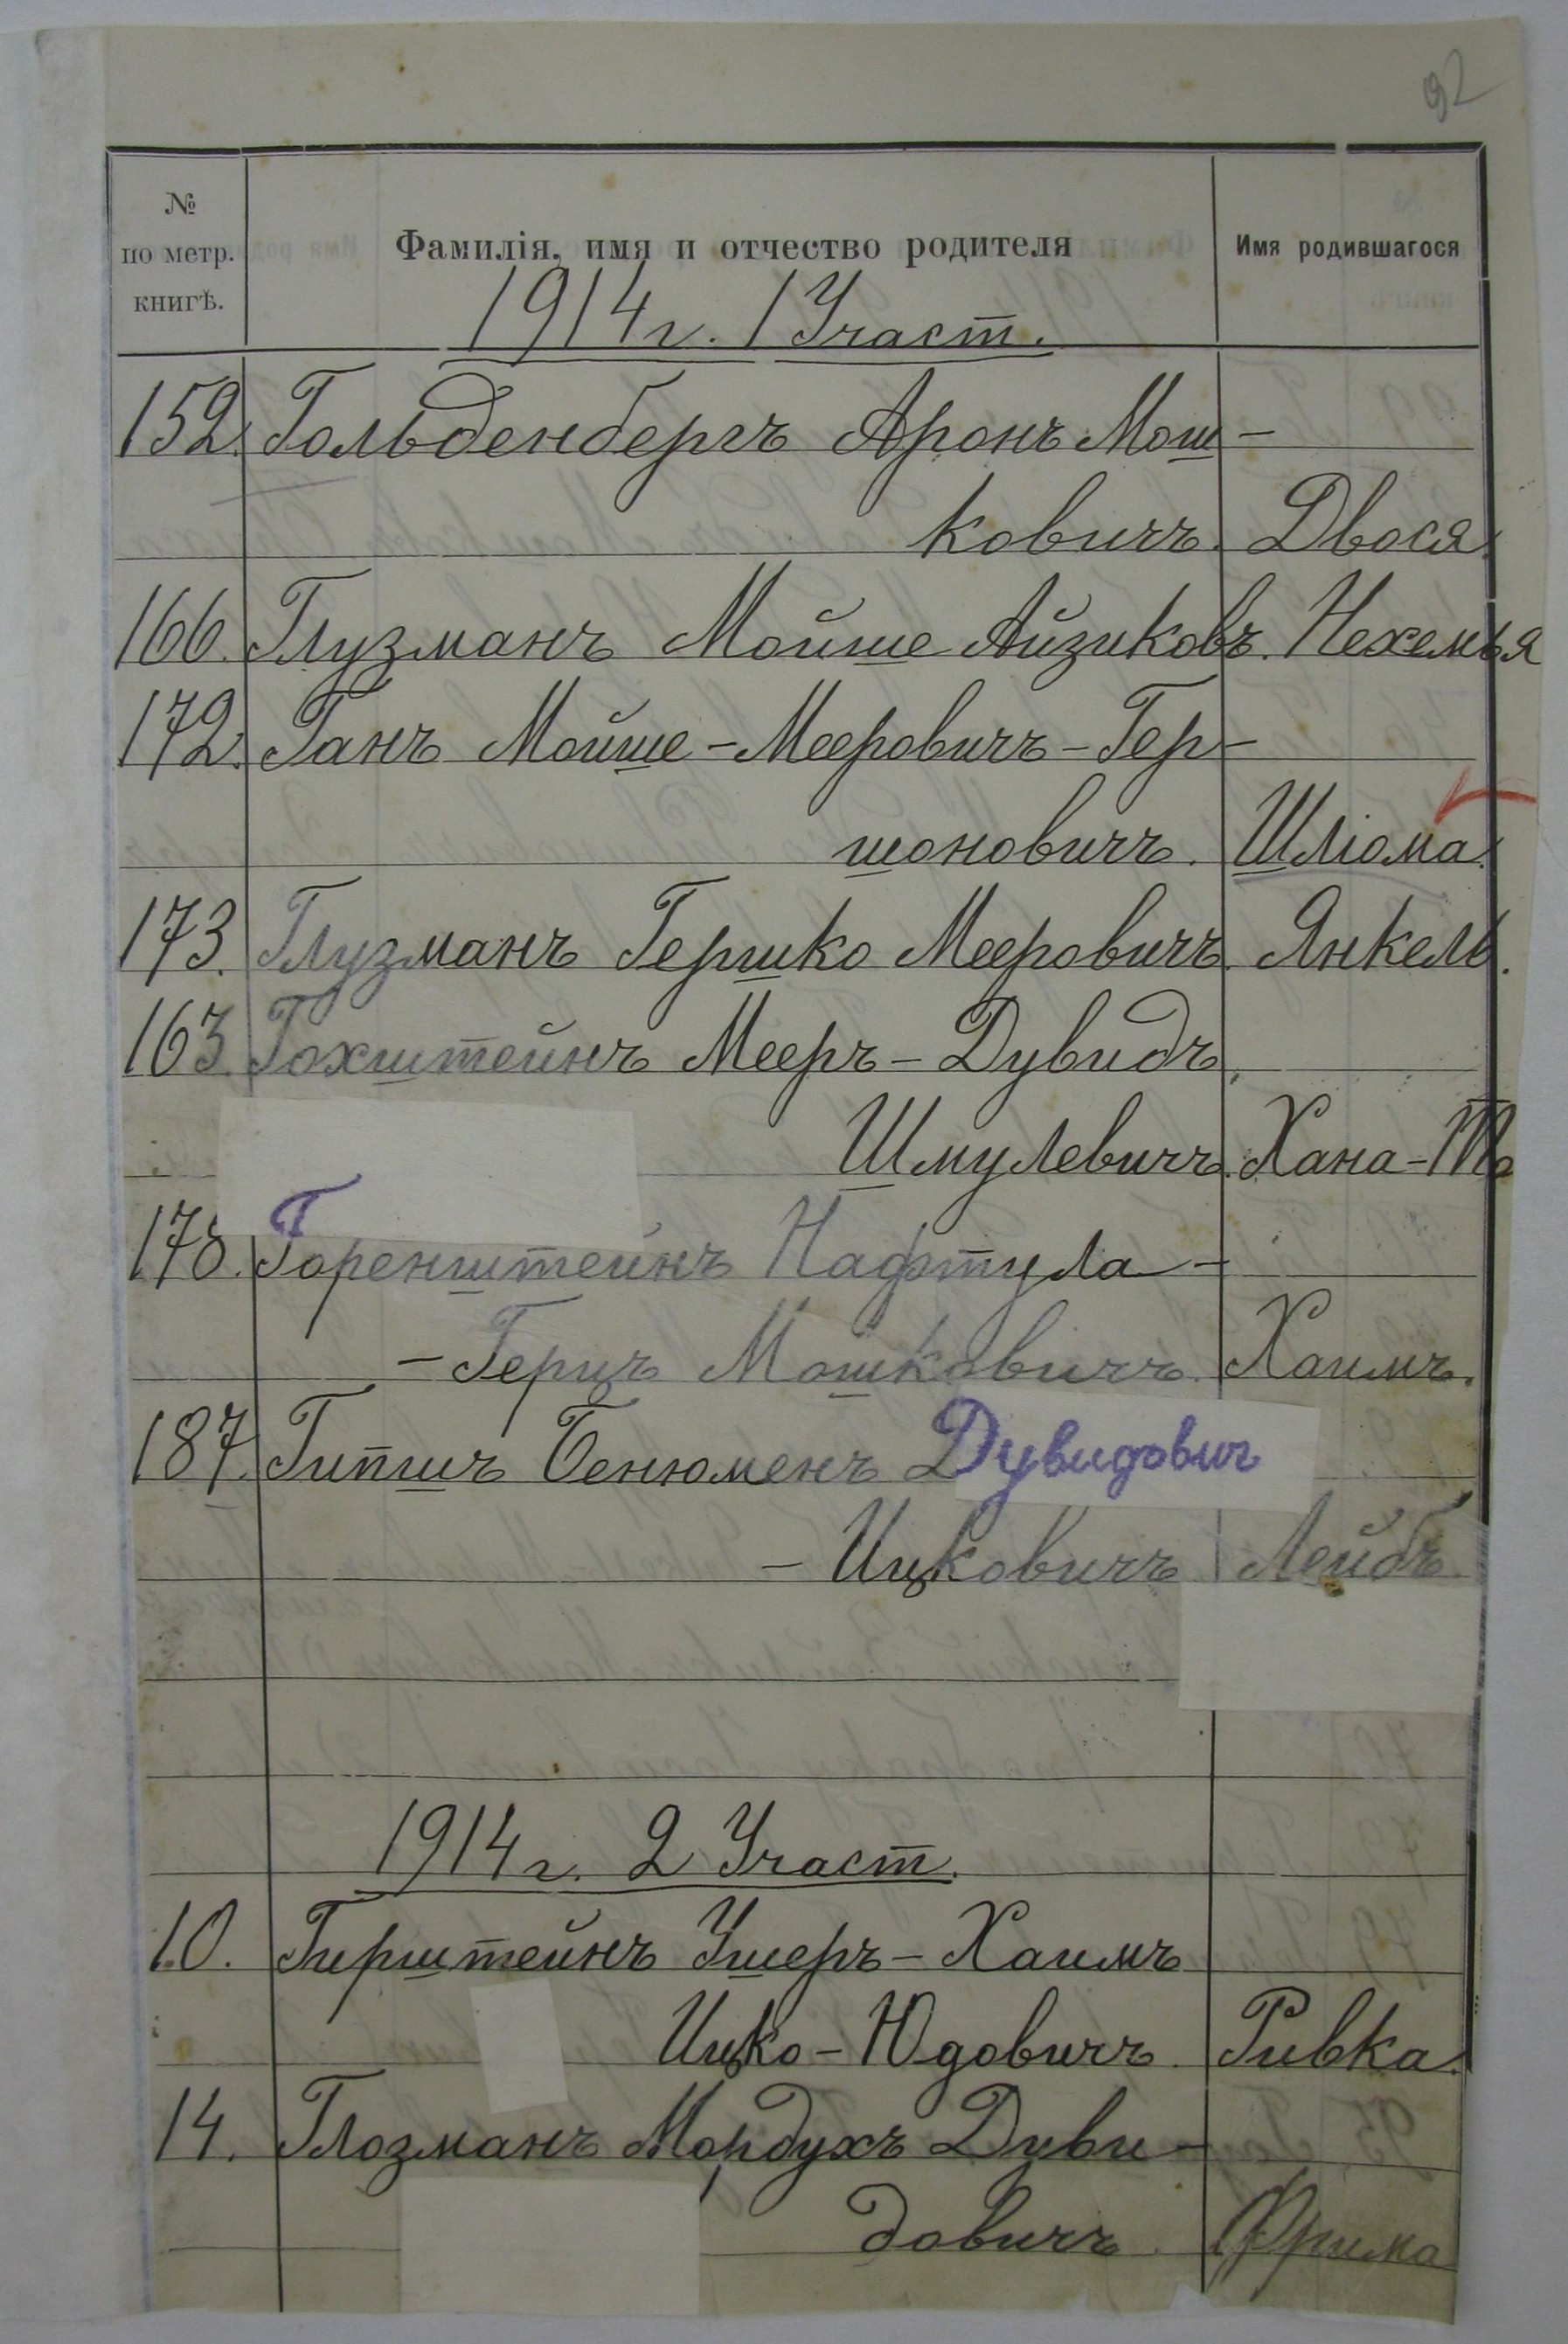 92
№
по метр.
книгѣ.
Фамилія, имя и отчество родителя
Имя родившагося
1914 г. 1 Участ.
152. Гольденбергъ Аронъ Мош-
ковичъ. Двося.
166. Глузманъ Мойше Айзиковъ. Нехемья
172. Ганъ Мойше-Мееровичъ-Гер-
шоновичъ. Шлiома.
173. Глузманъ Гершко Мееровичъ. Янкель.
163. Гохштейнъ Мееръ-Дувидъ
Шмулевичъ. Хана-
Г
178. Горенштейнъ Нафтула-
-Герцъ Мошковичъ. Хаимъ.
187. Гипшъ Бенюменъ Дувидович
-Ицковичъ Лейбъ.
1914 г. 2 Участ.
10. Гирштейнъ Ушеръ-Хаимъ
Ицко-Юдовичъ. Ривка.
14. Глозманъ Мордухъ Дуви-
довичъ. Фрима